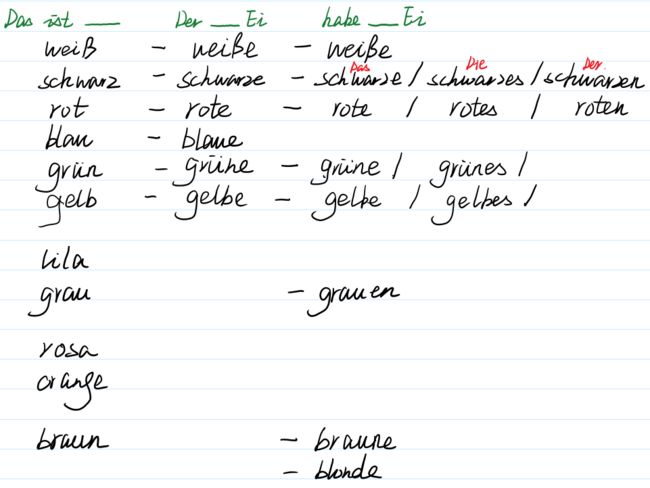 Das ist ___ Der ___ Ei habe ___ Ei
weiß - weiße - weiße
Das Die Der
schwarz - schwarze - schwarze / schwarzes / schwarzen
rot - rote - rote / rotes / roten
blau - blaue
grün - grüne - grüne / grünes /
gelb - gelbe - gelbe / gelbes /
lila
grau - grauen
rosa
orange
braun - braune
- blonde